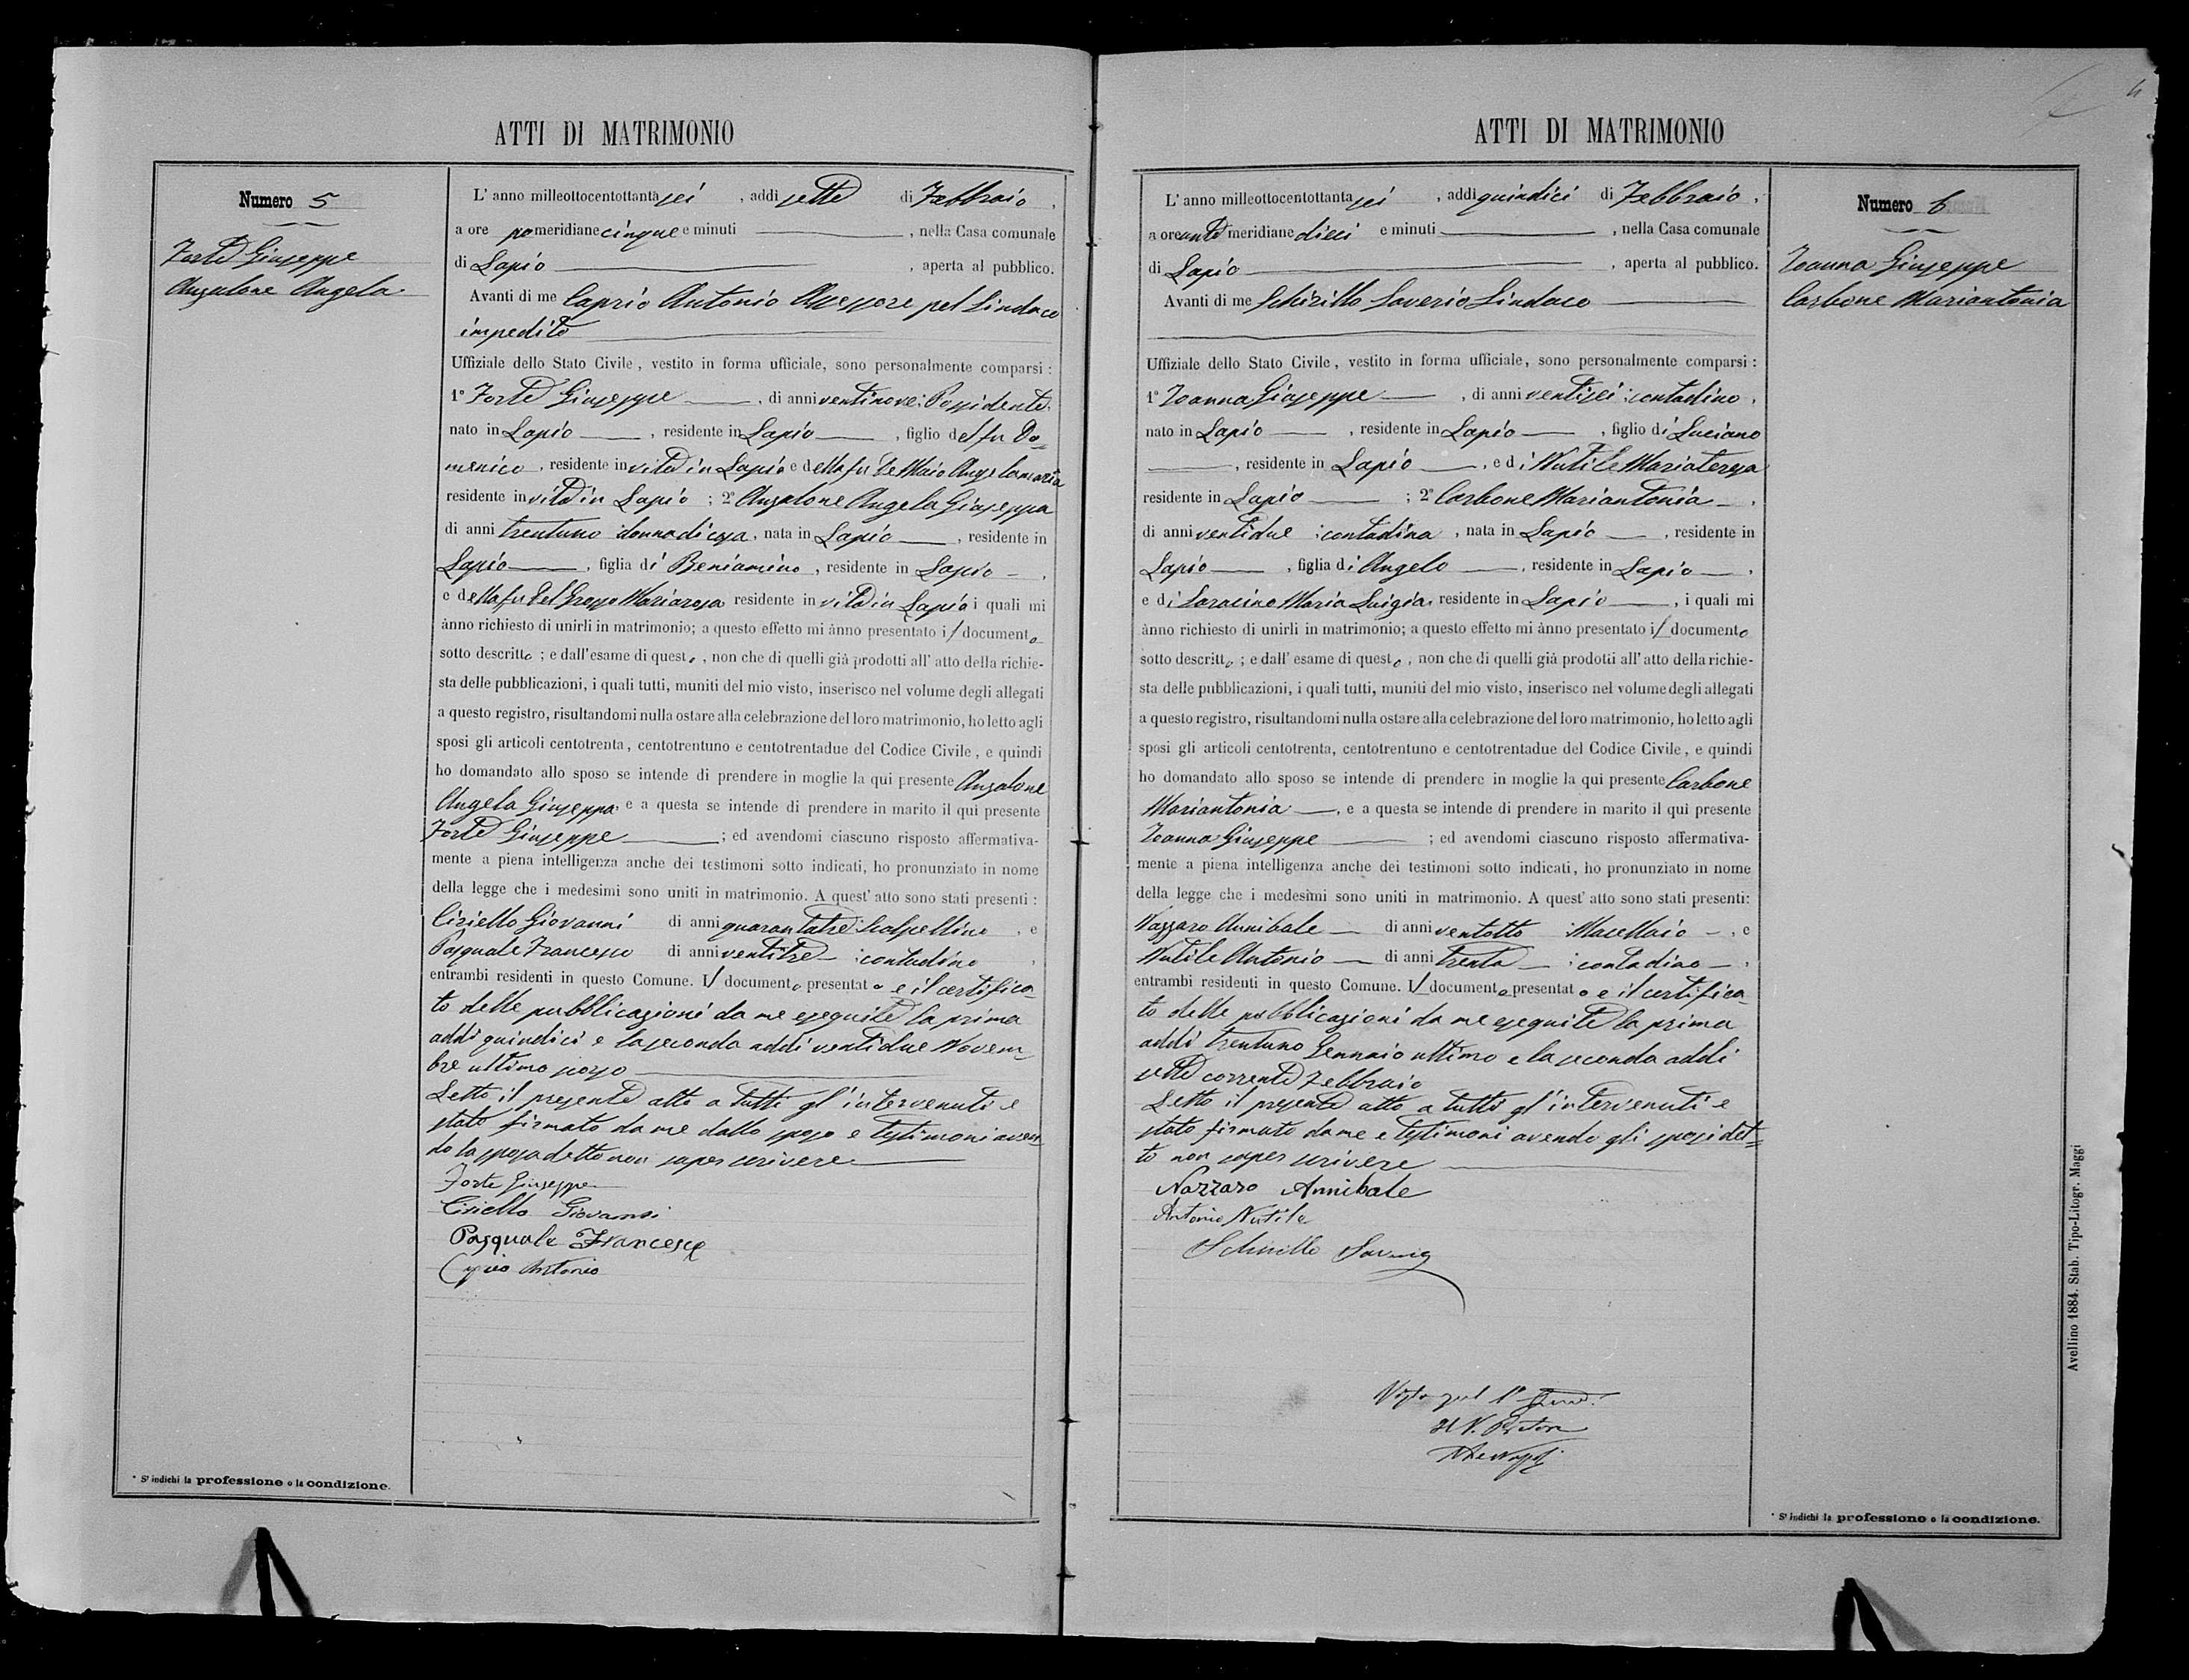 ATTI DI MATRIMONIO
Numero 5
Forte Giuseppe
Anzalone Angela
L' anno milleottocentottanta sei , addì sette di Febbraio ,
a ore pomeridiane cinque e minuti , nella Casa comunale
di Lapio , aperta al pubblico.
Avanti di me Caprio Antonio Assessore pel Sindaco
impedito
Uffiziale dello Stato Civile, vestito in forma ufficiale, sono personalmente comparsi :
1° Forte Giuseppe , di anni ventinove : Possidente ,
nato in Lapio , residente in Lapio , figlio del fu Do=
menico , residente in vita in Lapio e della fu De Maio Angelamaria
residente in vita in Lapio ; 2° Anzalone Angela Giuseppa
di anni trentuno : donna di casa , nata in Lapio , residente in
Lapio , figlia di Beniamino , residente in Lapio ,
e della fu Del Grosso Mariarosa residente in vita in Lapio i quali mi
ànno richiesto di unirli in matrimonio; a questo effetto mi ànno presentato il documento
sotto descritto ; e dall'esame di questo , non che di quelli già prodotti all' atto della richie-
sta delle pubblicazioni, i quali tutti, muniti del mio visto, inserisco nel volume degli allegati
a questo registro, risultandomi nulla ostare alla celebrazione del loro matrimonio, ho letto agli
sposi gli articoli centotrenta, centotrentuno e centotrentadue del Codice Civile, e quindi
ho domandato allo sposo se intende di prendere in moglie la qui presente Anzalone
Angela Giuseppa, e a questa se intende di prendere in marito il qui presente
Forte Giuseppe ; ed avendomi ciascuno risposto affermativa-
mente a piena intelligenza anche dei testimoni sotto indicati, ho pronunziato in nome
della legge che i medesimi sono uniti in matrimonio. A quest' atto sono stati presenti :
Ciriello Giovanni di anni quarantatre : Scalpellino , e
Pasquale Francesco di anni ventitre : contadino ,
entrambi residenti in questo Comune. Il documento presentato e il certifica=
to delle pubblicazioni da me eseguite la prima
addì quindici e la seconda addì ventidue Novem=
bre ultimo scorso
Letto il presente atto a tutti gl'intervenuti è
stato firmato da me dallo sposo e testimoni aven=
do la sposa detto non saper scrivere
Forte Giuseppe
Ciriello Giovanni
Pasquale Francesco
Caprio Antonio
* S' indichi la professione o la condizione.
ATTI DI MATRIMONIO
Numero 6
Ioanna Giuseppe
Carbone Mariantonia
L' anno milleottocentottanta sei , addì quindici di Febbraio ,
a ore ante meridiane dieci e minuti , nella Casa comunale
di Lapio , aperta al pubblico.
Avanti di me Schirillo Saverio Sindaco
Uffiziale dello Stato Civile, vestito in forma ufficiale, sono personalmente comparsi :
1° Ioanna Giuseppe , di anni ventisei : contadino ,
nato in Lapio , residente in Lapio , figlio di Luciano
, residente in Lapio , e di Nutile Mariateresa
residente in Lapio ; 2° Carbone Mariantonia ,
di anni ventidue : contadina , nata in Lapio , residente in
Lapio , figlia di Angelo , residente in Lapio ,
e di Saracino Maria Luigia, residente in Lapio , i quali mi
ànno richiesto di unirli in matrimonio; a questo effetto mi ànno presentato il documento
sotto descritto ; e dall' esame di questo , non che di quelli già prodotti all' atto della richie-
sta delle pubblicazioni, i quali tutti, muniti del mio visto, inserisco nel volume degli allegati
a questo registro, risultandomi nulla ostare alla celebrazione del loro matrimonio, ho letto agli
sposi gli articoli centotrenta, centotrentuno e centotrentadue del Codice Civile, e quindi
ho domandato allo sposo se intende di prendere in moglie la qui presente Carbone
Mariantonia , e a questa se intende di prendere in marito il qui presente
Ioanna Giuseppe ; ed avendomi ciascuno risposto affermativa-
mente a piena intelligenza anche dei testimoni sotto indicati, ho pronunziato in nome
della legge che i medesimi sono uniti in matrimonio. A quest' atto sono stati presenti:
Nazzaro Annibale di anni ventotto : Macellaio , e
Nutile Antonio di anni trenta : contadino ,
entrambi residenti in questo Comune. Il documento presentato e il certifica=
to delle pubblicazioni da me eseguite la prima
addì trentuno Gennaio ultimo e la seconda addì
sette corrente Febbraio
Letto il presente atto a tutti gl'intervenuti è
stato firmato da me e testimoni avendo gli sposi det=
to non saper scrivere
Nazzaro Annibale
Antonio Nutile
Schirillo Saverio
Visto pel
Il V. Pretore
* S' indichi la professione o la condizione.
Avellino 1884. Stab. Tipo-Litogr. Maggi